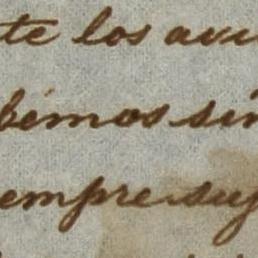 te los avi
bémos sin
empre sup